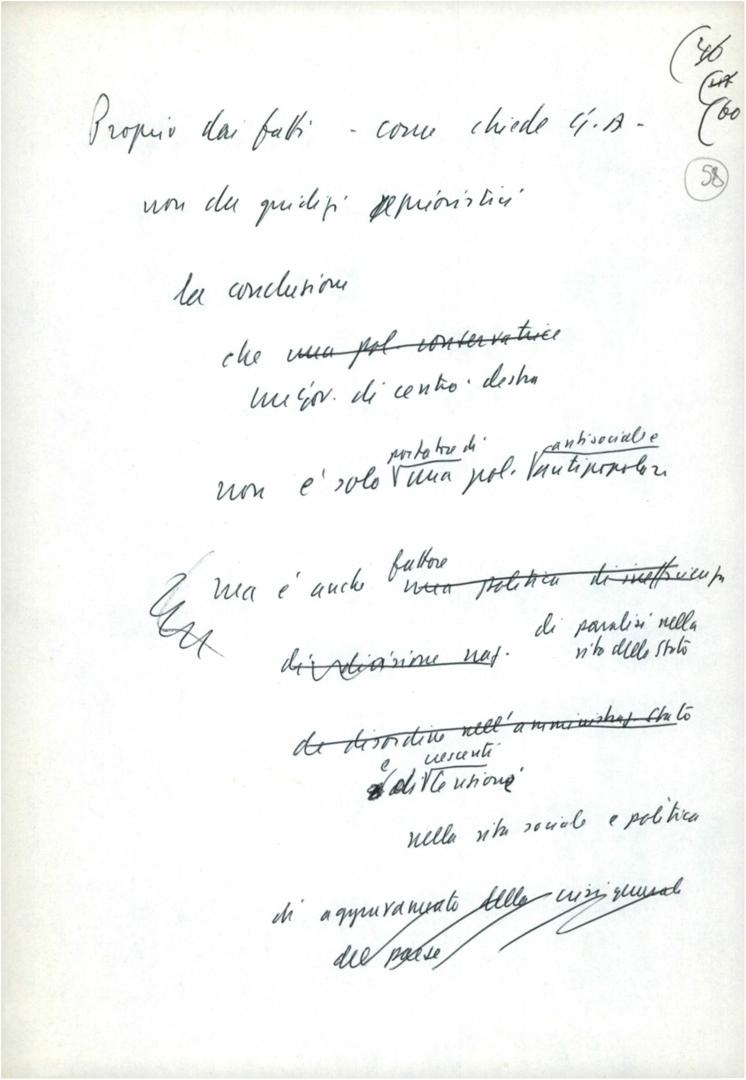 (46
(47
(60
58
Proprio dai fatti - come chiede G.A -
non da giudizi aprioristici
la conclusione
che una pol. conservatrice
un gov. di centro-destra
portatore di antisociale e
non è solo una pol. antipopolare
ma è anche fattore una politica di inefficienza
di divisione naz. di paralisi nella
vita dello Stato
di disordine nell'amministraz. Stato
e crescenti
di tensioni
nella vita sociale e politica
di aggravamento della crisi generale
del paese